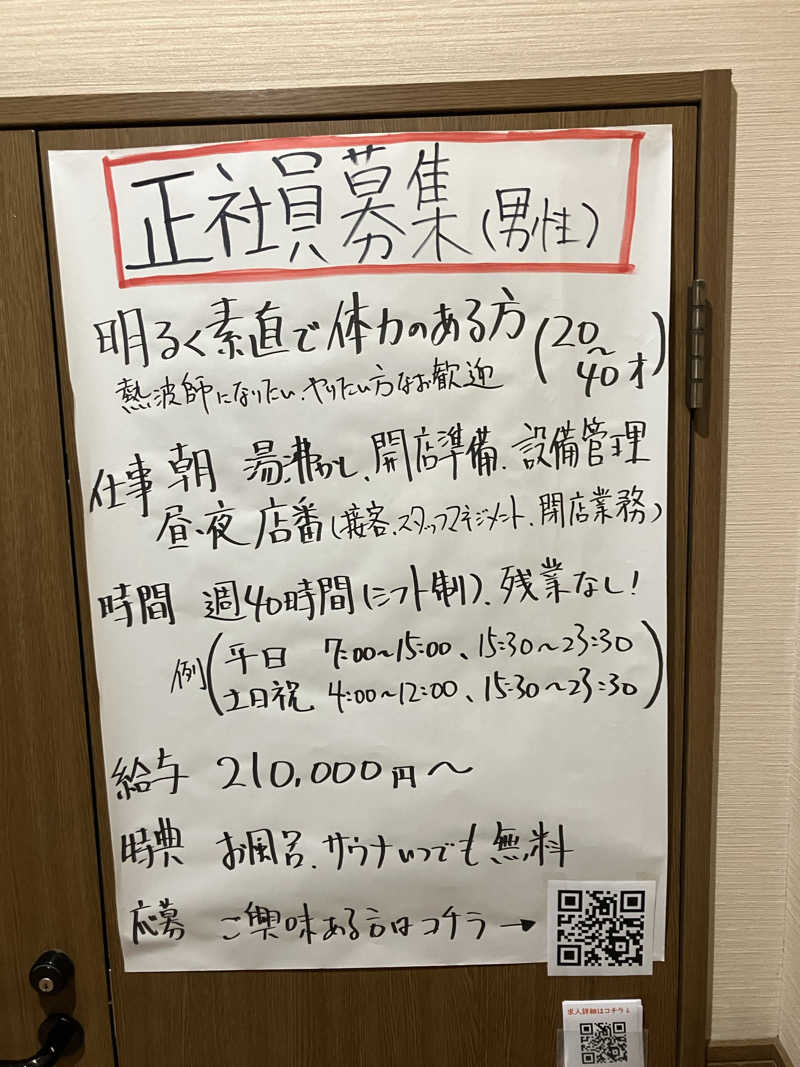 正社員募集(男性)
明るく素直で体力のある方(20~40才)
熱波師になりたい、やりたい方なお歓迎
仕事 朝 湯沸かし、開店準備、設備管理
昼・夜 店番(接客、スタッフマネジメント、閉店業務)
時間 週40時間(シフト制)、残業なし!
例(平日 7:00~15:00、15:30~23:30
土日祝 4:00~12:00、15:30~23:30)
給与 210,000円~
特典 お風呂、サウナいつでも無料
応募 ご興味ある方はコチラ→
求人詳細はコチラ↓